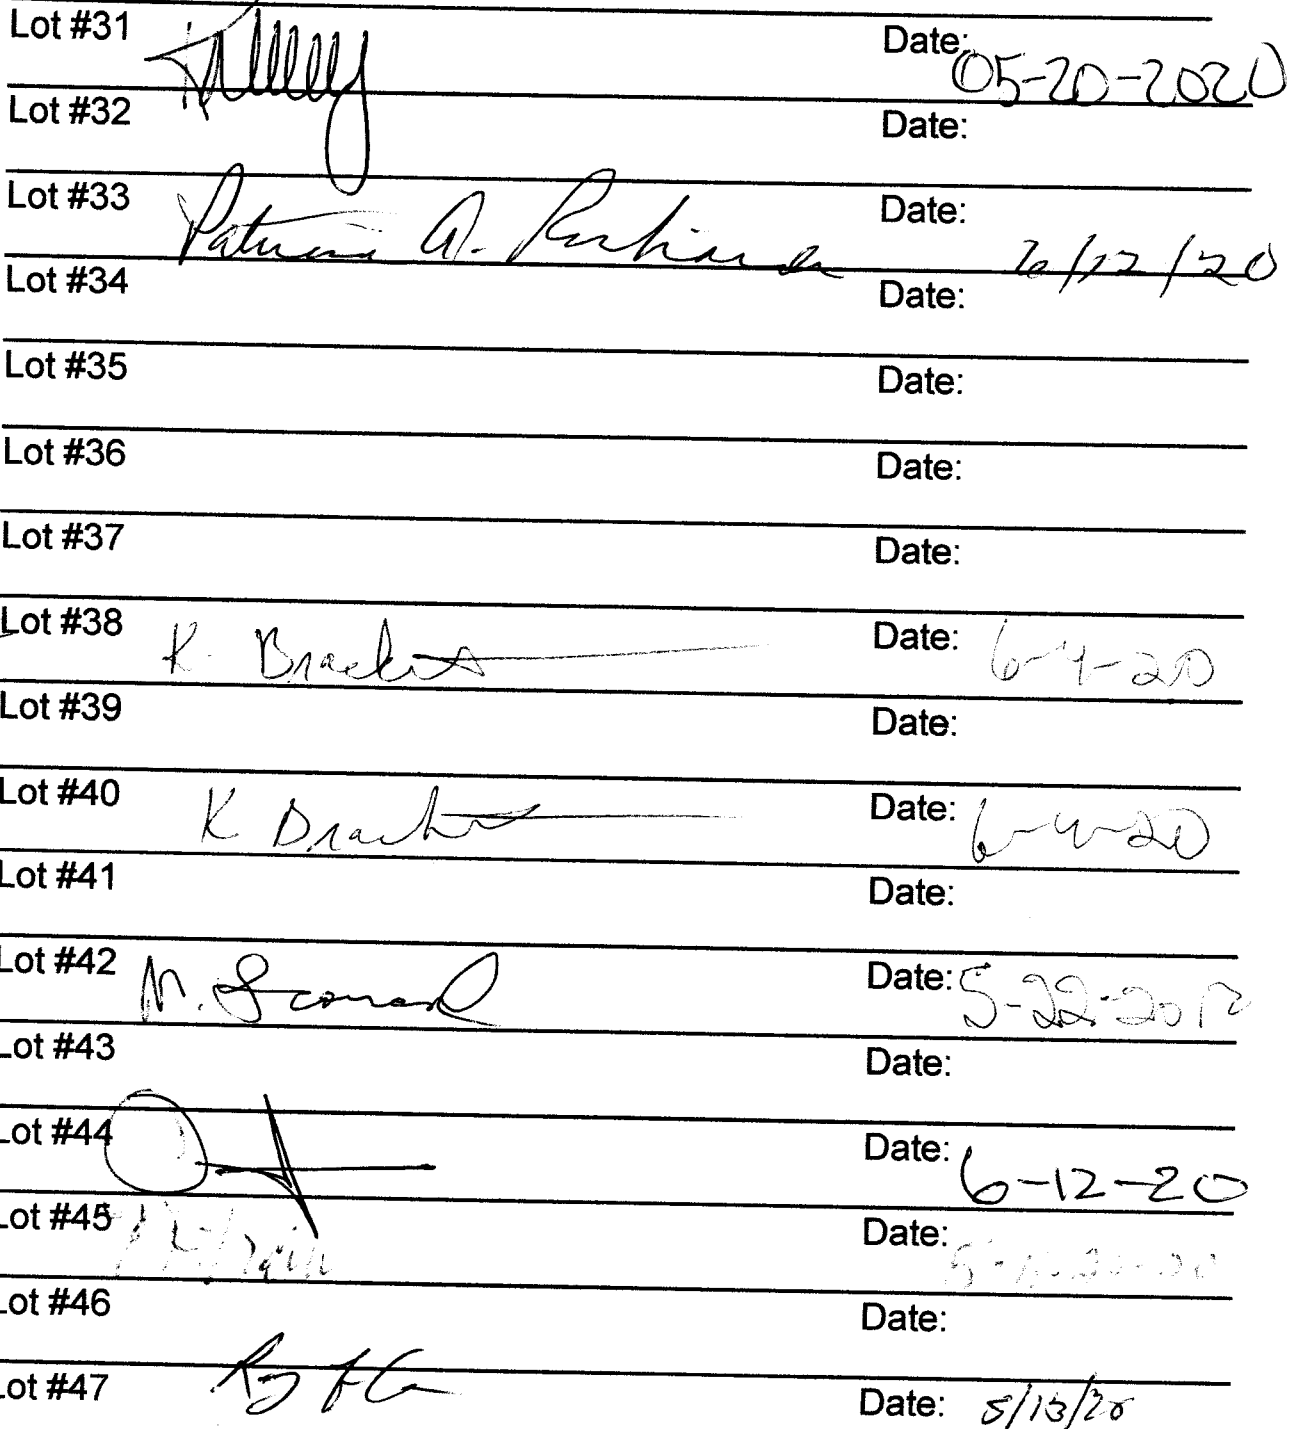 Lot #31 Date: 05-20-2020
Lot #32 Date:
Lot #33 Patricia A. Date: /12/20
Lot #34 Date:
Lot #35 Date:
Lot #36 Date:
Lot #37 Date:
Lot #38 K. Brackett Date: 6-4-20
Lot #39 Date:
Lot #40 K Brackett Date: 6-4-20
Lot #41 Date:
Lot #42 M. Date: 5-22-
Lot #43 Date:
Lot #44 Date: 6-12-20
Lot #45 Date:
Lot #46 Date:
Lot #47 Date: 5/13/20